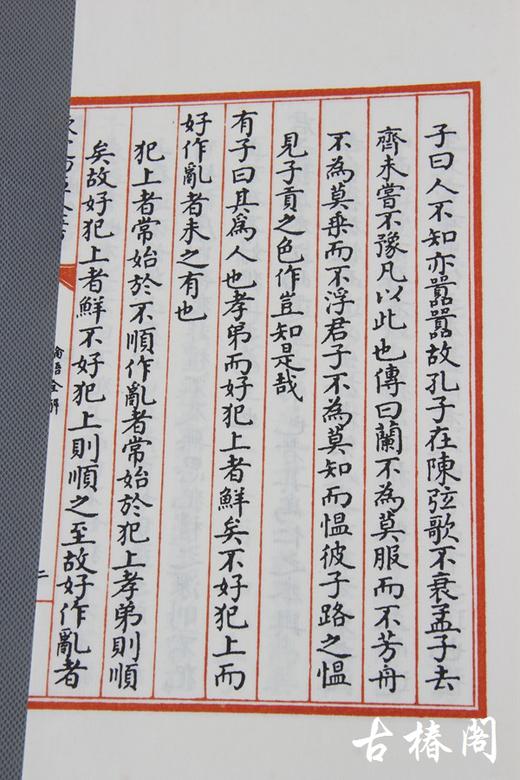 子曰人不知亦嚻嚻故孔子在陳弦歌不衰孟子去
齊未嘗不豫凡以此也傳曰蘭不為莫服而不芳舟
不為莫乗而不浮君子不為莫知而愠彼子路之愠
見子貢之色作豈知是哉
有子曰其爲人也孝弟而好犯上者鮮矣不好犯上而
好作亂者未之有也
犯上者常始於不順作亂者常始於犯上孝弟則順
矣故好犯上者鮮不好犯上則順之至故好作亂者
論語全解
二
古椿閣